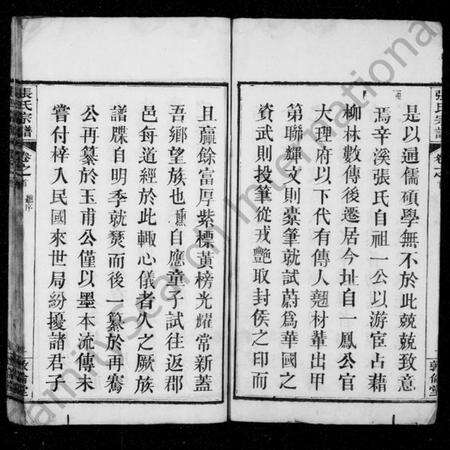 是以通儒碩學無不於此兢兢致意
焉辛溪張氏自祖一公以游宦占藉
柳林數傳後遷居今址自一鳳公官
大理府以下代有傳人翹材輩出甲
第聯輝文則橐筆就試蔚為華國之
資武則投筆從戎艷取封侯之印而
且贏餘富厚紫標黃榜光耀常新蓋
吾鄉望族也 自應童子試往返郡
邑每道經於此輙心儀者久之厥族
譜牒自明季就燹而後一纂於再騫
公再纂於玉甫公僅以墨本流傳未
嘗付梓入民國來世局紛擾諸君子
張氏宗譜
卷之首
敦倫堂
張氏宗譜
卷之
敦倫堂
Search International